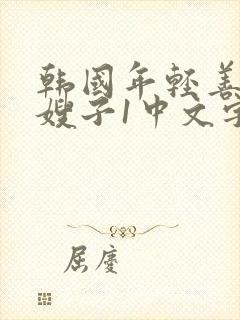 韩国年轻善
嫂子1中文字
屈庆